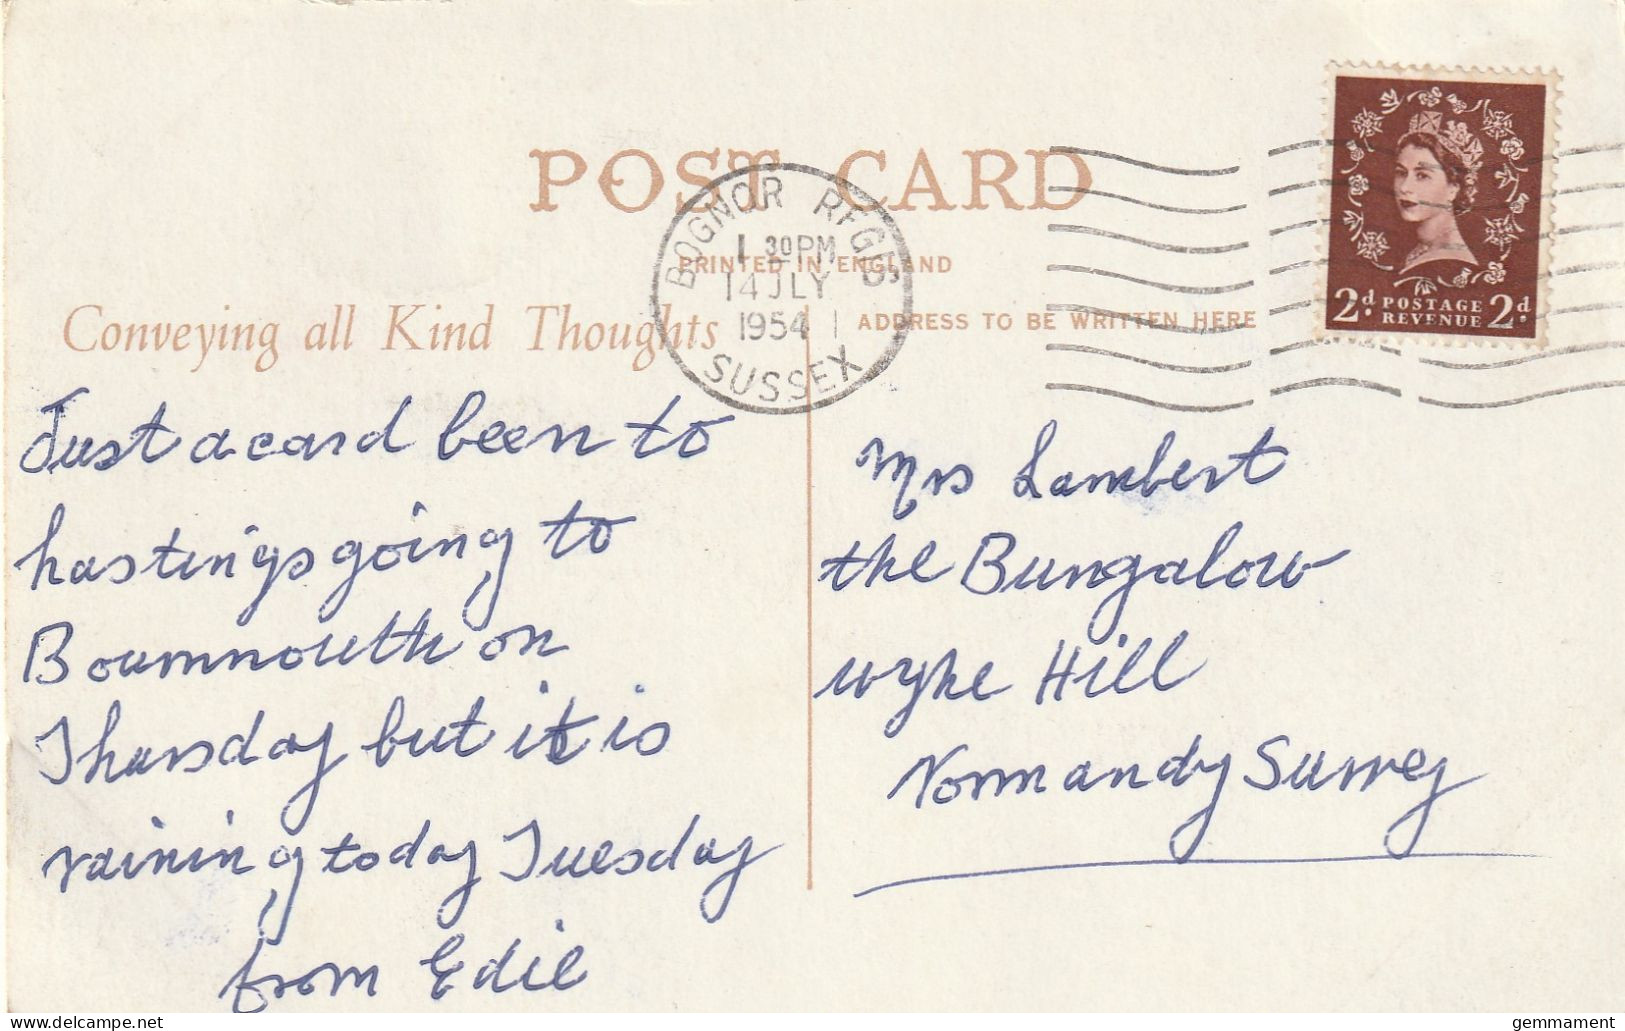 POST CARD
PRINTED IN ENGLAND
Conveying all Kind Thoughts
ADDRESS TO BE WRITTEN HERE
BOGNOR REGIS
1 30 PM
14 JLY
1954
SUSSEX
2d. POSTAGE REVENUE 2d.
Just a card been to
hastings going to
Bournmouth on
Thursday but it is
raining today Tuesday
from Edie
Mrs Lambert
the Bungalow
wyke Hill
Normandy Surrey
delcampe.net
gemmament